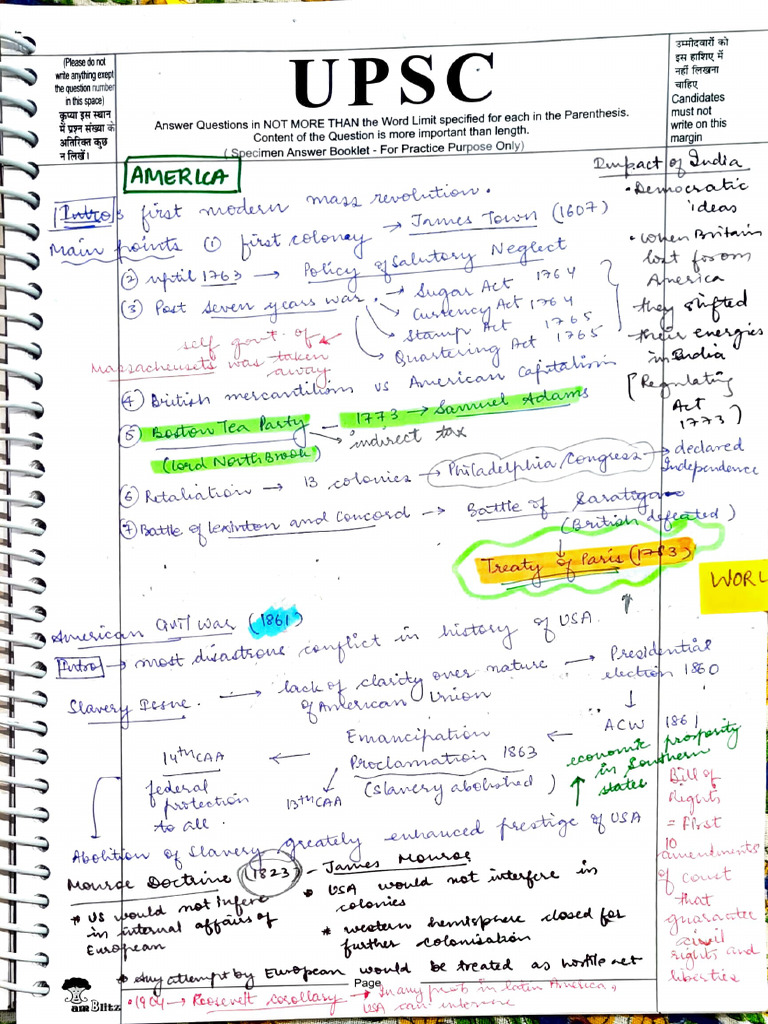 (Please do not
write anything exept
the question number
in this space)
कृपया इस स्थान
में प्रश्न संख्या के
अतिरिक्त कुछ
न लिखें।
UPSC
Answer Questions in NOT MORE THAN the Word Limit specified for each in the Parenthesis.
Content of the Question is more important than length.
( Specimen Answer Booklet - For Practice Purpose Only)
उम्मीदवारों को
इस हाशिए में
नहीं लिखना
चाहिए
Candidates
must not
write on this
margin
AMERICA
Intro: first modern mass revolution.
Main points ① first coloney → James Town (1607)
② uptil 1763 → Policy of Salutory Neglect
③ Post seven years war. → Sugar Act 1764
→ Currency Act 1764
→ Stamp Act 1765
→ Quartering Act 1765
self govt. of
Massacheusets was taken
away
④ British mercanditions vs American capitalism
⑤ Boston Tea Party - 1773 → Samuel Adams
→ indirect tax
(Lord North Brook)
⑥ Retaliation → 13 colonies → Philadelphia Congress → declared
Independence
⑦ Battle of lexinton and Concord → Battle of Saratiga
(British defeated)
↓
Treaty of Paris (1783)
Impact of India
• Democratic
ideas
• when Britain
lost from
America
they shifted
their energies
in India
[Regulating
Act
1773)
WORL
American Civil War (1861)
Intro → most disastrous conflict in history of USA
Slavery Issue. → lack of clarity over nature → Presidential
of American Union election 1860
↓
ACW 1861
14thCAA ← Emancipation ←
Proclamation 1863
(Slavery abolished)
federal
protection
to all.
13thCAA
↑ economic prosperity
in Southern
states
Abolition of Slavery greately enhanced prestige of USA
Monroe Doctrine (1823) - James Monroe
* US would not infere
in internal affairs of
European
* USA would not interfere in
colonies
* western hemisphere closed for
further colonisation
* Any attempt by European would be treated as hostile act
Bill of
Rights
= first
10
amendments
of court
that
guarantee
civil
rights and
liberties
Page
am Blitz
• 1904 → Roosevelt corollary → In any prob in latin America,
USA can intervene